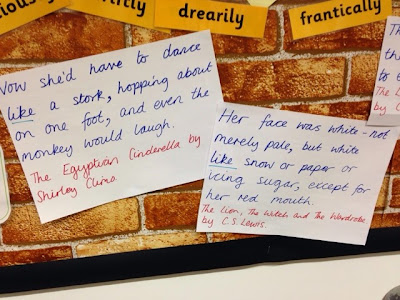 drearily
frantically
Now she'd have to dance
like a stork, hopping about
on one foot, and even the
monkey would laugh.
The Egyptian Cinderella by
Shirley Climo.
Her face was white - not
merely pale, but white
like snow or paper or
icing sugar, except for
her red mouth.
The Lion, The Witch and The Wardrobe
by C.S. Lewis.